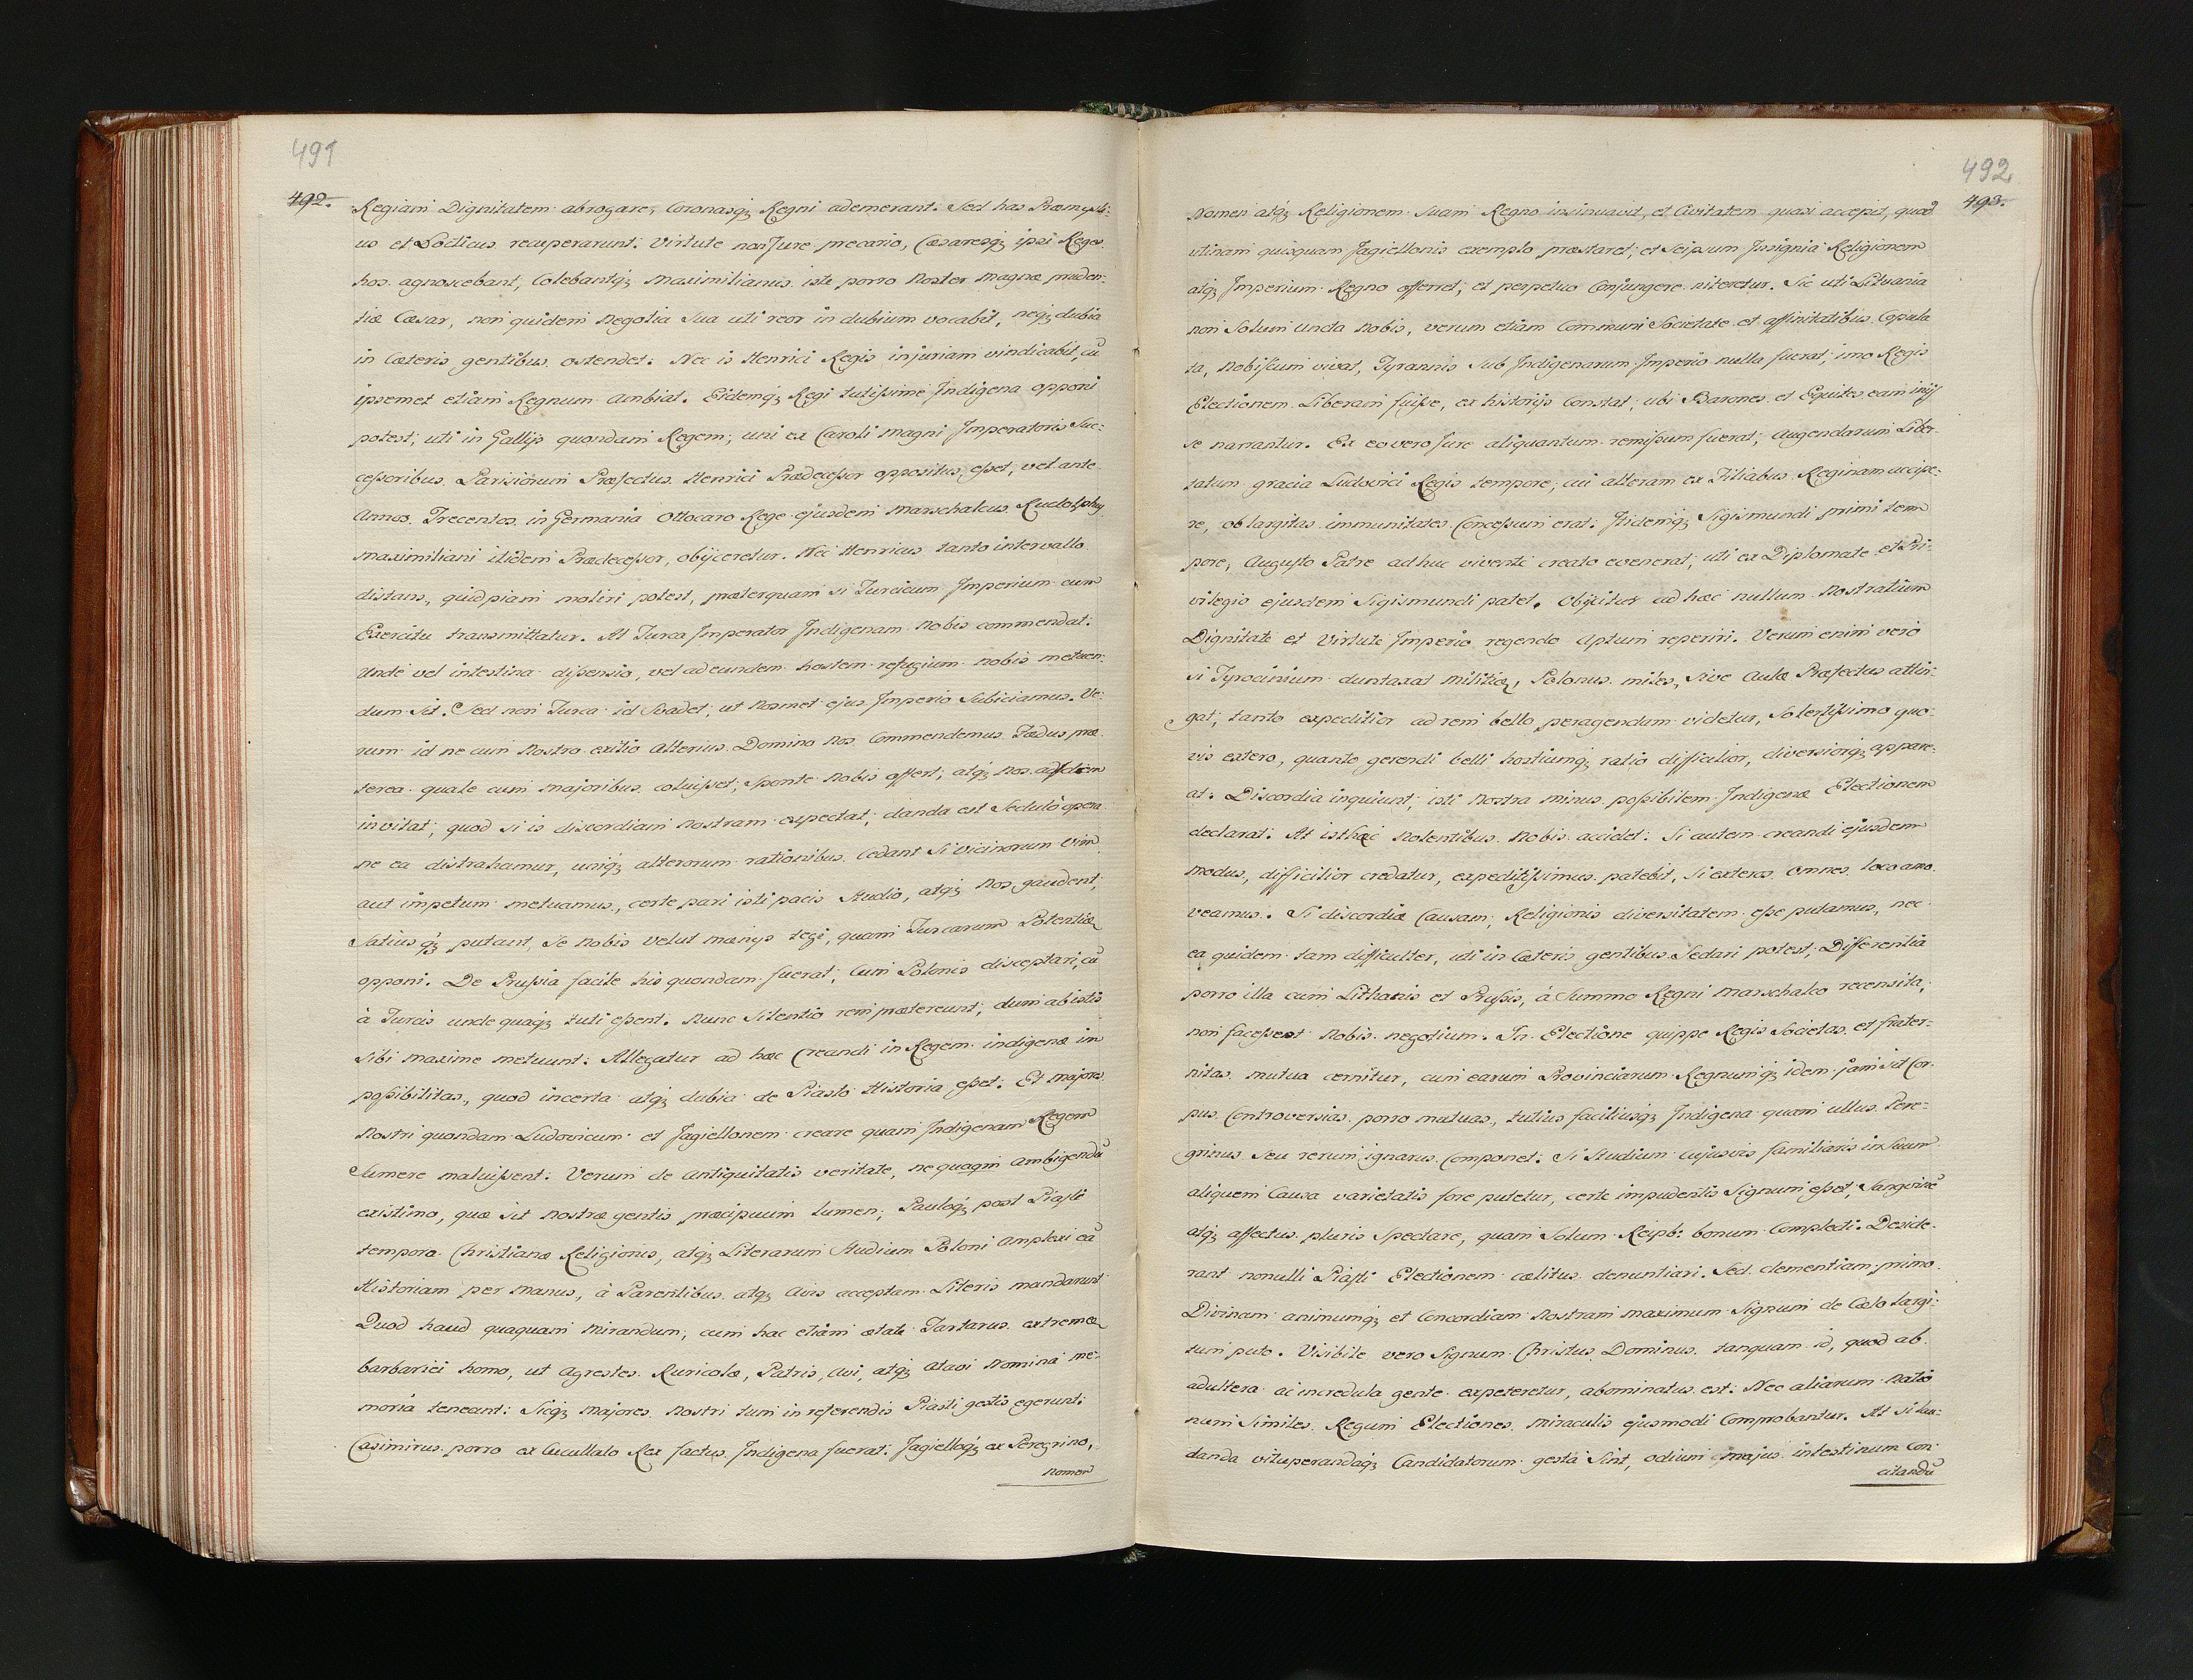 491
492.
Regiam Dignitatem abrogare, Coronasq; Regni ademerant. Sed has Præmysli:
us et Locticus recuperarunt: Virtute non Jure precario, Cæsaresq; ipsi Reges
hos agnoscebant, Colebantq; Maximilianus iste porro Noster Magnæ pruden:
tiæ Cæsar, non quidem Negotia Sua uti reor in dubium vocabit, neq; dubia
in Cæteris gentibus ostendet: Nec is Henrici Regis injuriam vindicabit, cū
ipsemet etiam Regnum Ambiat. Eidemq; Regi tutissime Indigena opponi
potest; uti in Gallijs quondam Regem; uni ex Caroli Magni Imperatoris Suc:
cessoribus Parisiorum Præfectus Henrici Prædecessor oppositus esset, vel ante
Annos Trecentos in Germania Ottocaro Rege ejusdem Marschalcus Rudolphus
Maximiliani itidem Prædecessor, objiceretur. Nec Henricus tanto intervallo
distans, quidpiam moliri potest, præterquam si Turcicum Imperium cum
Exercitu transmittatur. At Turca Imperator Indigenam Nobis commendat:
Unde vel intestina dissensio, vel ad eundem hostem refugium nobis metuen:
dum sit. Sed non Turca id Svadet, ut Nosmet ejus Imperio Subiciamus. Ve:
rum id ne cum Nostro exitio Alterius Domino Nos Commendemus Fædus præ
terea quale cum Majoribus coluisset; Sponte Nobis offert; atq; Nos ad idem
invitat; quod si is discordiam Nostram expectat; danda est Sedulò opera
ne ea distrahamur, uniq; alterorum rationibus Cedant Si Vicinorum Vim
aut impetum metuamus, certe pari isti pacis Studio, atq; Nos gaudent;
Satius q; putant, Se Nobis velut mænijs tegi, quam Turcarum Potentiæ
opponi. De Prussia facile his quondam fuerat; Cum Polonis disceptari, cū
à Turcis undequaq; tuti essent. Nunc Silentio rem prætereunt; dum ab istis
Sibi maxime metuunt: Allegatur ad hæc Creandi in Regem indigenæ im
possibilitas, quod incerta atq; dubia de Piasto Historia esset: Et majores
Nostri quondam Ludovicum et Jagiellonem creare quam Indigenam Regem
Sumere maluissent: Verum de Antiquitatis veritate, nequaqm ambigendū
existimo, quæ sit Nostræ gentis præcipuum lumen; Pauloq; post Piasti
tempora Christianæ Religionis, atq; Literarum Studium Poloni Amplexi eā
Historiam per Manus, à Parentibus atq; Avis acceptam Literis mandarunt
Quod haud quaquam Mirandum; cum hac etiam ætate Tartarus extremæ
barbariei homo, ut Agrestes Ruricolæ, Patris, Avi, atq; Atavi Nomina me:
moriâ teneant: Sicq; Majores Nostri tum in referendis Piasti gestis egerunt:
Casimirus porro ex Cucullato Rex factus Indigena fuerat: Jagielloq; ex Peregrino,
Nomen
492
493.
Nomen atq; Religionem Suam Regno insinuavit, et Civitatem quasi accepit, quod
utinam quisquam Jagiellonis exemplo præstaret; et Seipsum Insignia Religionem
atq; Imperium Regno offerret; et perpetuo Conjungere niteretur. Sic uti Lituania
non Solum Uncta Nobis, verum etiam Communi Societate et affinitatibus Copula
ta, Nobiscum vivat, Tyrannis Sub Indigenarum Imperio nulla fuerat; imo Regis
Electionem Liberam fuisse, ex historijs Constat; ubi Barones et Equites eam inijs
se narrantur. Ex eo vero Jure aliquantum remissum fuerat; Augendarum Liber:
tatum gracia Ludovici Regis tempore; cui alteram ex Filiabus Reginam accipe:
re, ob largitas immunitates Concessum erat: Itidemq; Sigismundi primi tem
pore, Augusto Patre adhuc vivente creato evenerat; uti ex Diplomate et Pri:
vilegio ejusdem Sigismundi patet. Objicitur ad hæc nullum Nostratium
Dignitate et Virtute Imperio regendo Aptum reperiri. Verum enim vero
si Tyrocinium duntaxat Militiæ, Polonus miles, Sive Aulæ Præfectus attin:
gat; tanto expeditior ad rem bello peragendum videtur, Solertissimo quo:
vis extero, quanto gerendi belli hostiumq; ratio difficilior, diversiorq; appare:
at: Discordia inquiunt; isti Nostra minus possibilem Indigenæ Electionem
declarat: At isthæc Nolentibus Nobis accidet: Si autem creandi ejusdem
Modus, difficilior credatur, expeditissimus patebit, Si exteros Omnes loco amo
veamus. Si discordiæ Causam, Religionis diversitatem esse putamus, nec
ea quidem tam difficulter, uti in Cæteris gentibus Sedari potest; Differentia
porro illa cum Lithanis et Prussis, à Summo Regni Marschalco recensita;
non facessent Nobis negotium. In Electione quippe Regis Societas et frater:
nitas mutua cernitur, cum earum Provinciarum Regnumq; idem jam sit Cor:
pus. Controversias porro mutuas, tutius faciliusq; Indigena quam ullus Pere:
grinus Seu rerum ignarus Componet: Si Studium cujusvis familiaris in Suum
aliquem Causa varietatis fore putetur, certe impudentis Signum esset, Sangvine
atq; affectus pluris Spectare, quam Solum Reipb: bonum Complecti. Deside:
rant nonulli Piasti Electionem cælitus denuntiari. Sed clementiam primo
Divinam animumq; et Concordiam Nostram maximum Signum de Cælo largi:
tum puto. Visibile vero Signum Christus Dominus tanquam id, quod ab
adultera ac incredula gente expeteretur, abominatus est: Nec aliarum Natio
num Similes Regum Electiones Miraculis ejusmodi Comprobantur. At si lau:
danda vituperandaq; Candidatorum gesta Sint, odium majus intestinum Con:
citandū